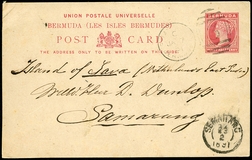 UNION POSTALE UNIVERSELLE
BERMUDA (LES ILES BERMUDES)
POST CARD
THE ADDRESS ONLY TO BE WRITTEN ON THIS SIDE
Island of Java (Netherlands East Indies)
D. Dunlop
Samarang
SEMARANG